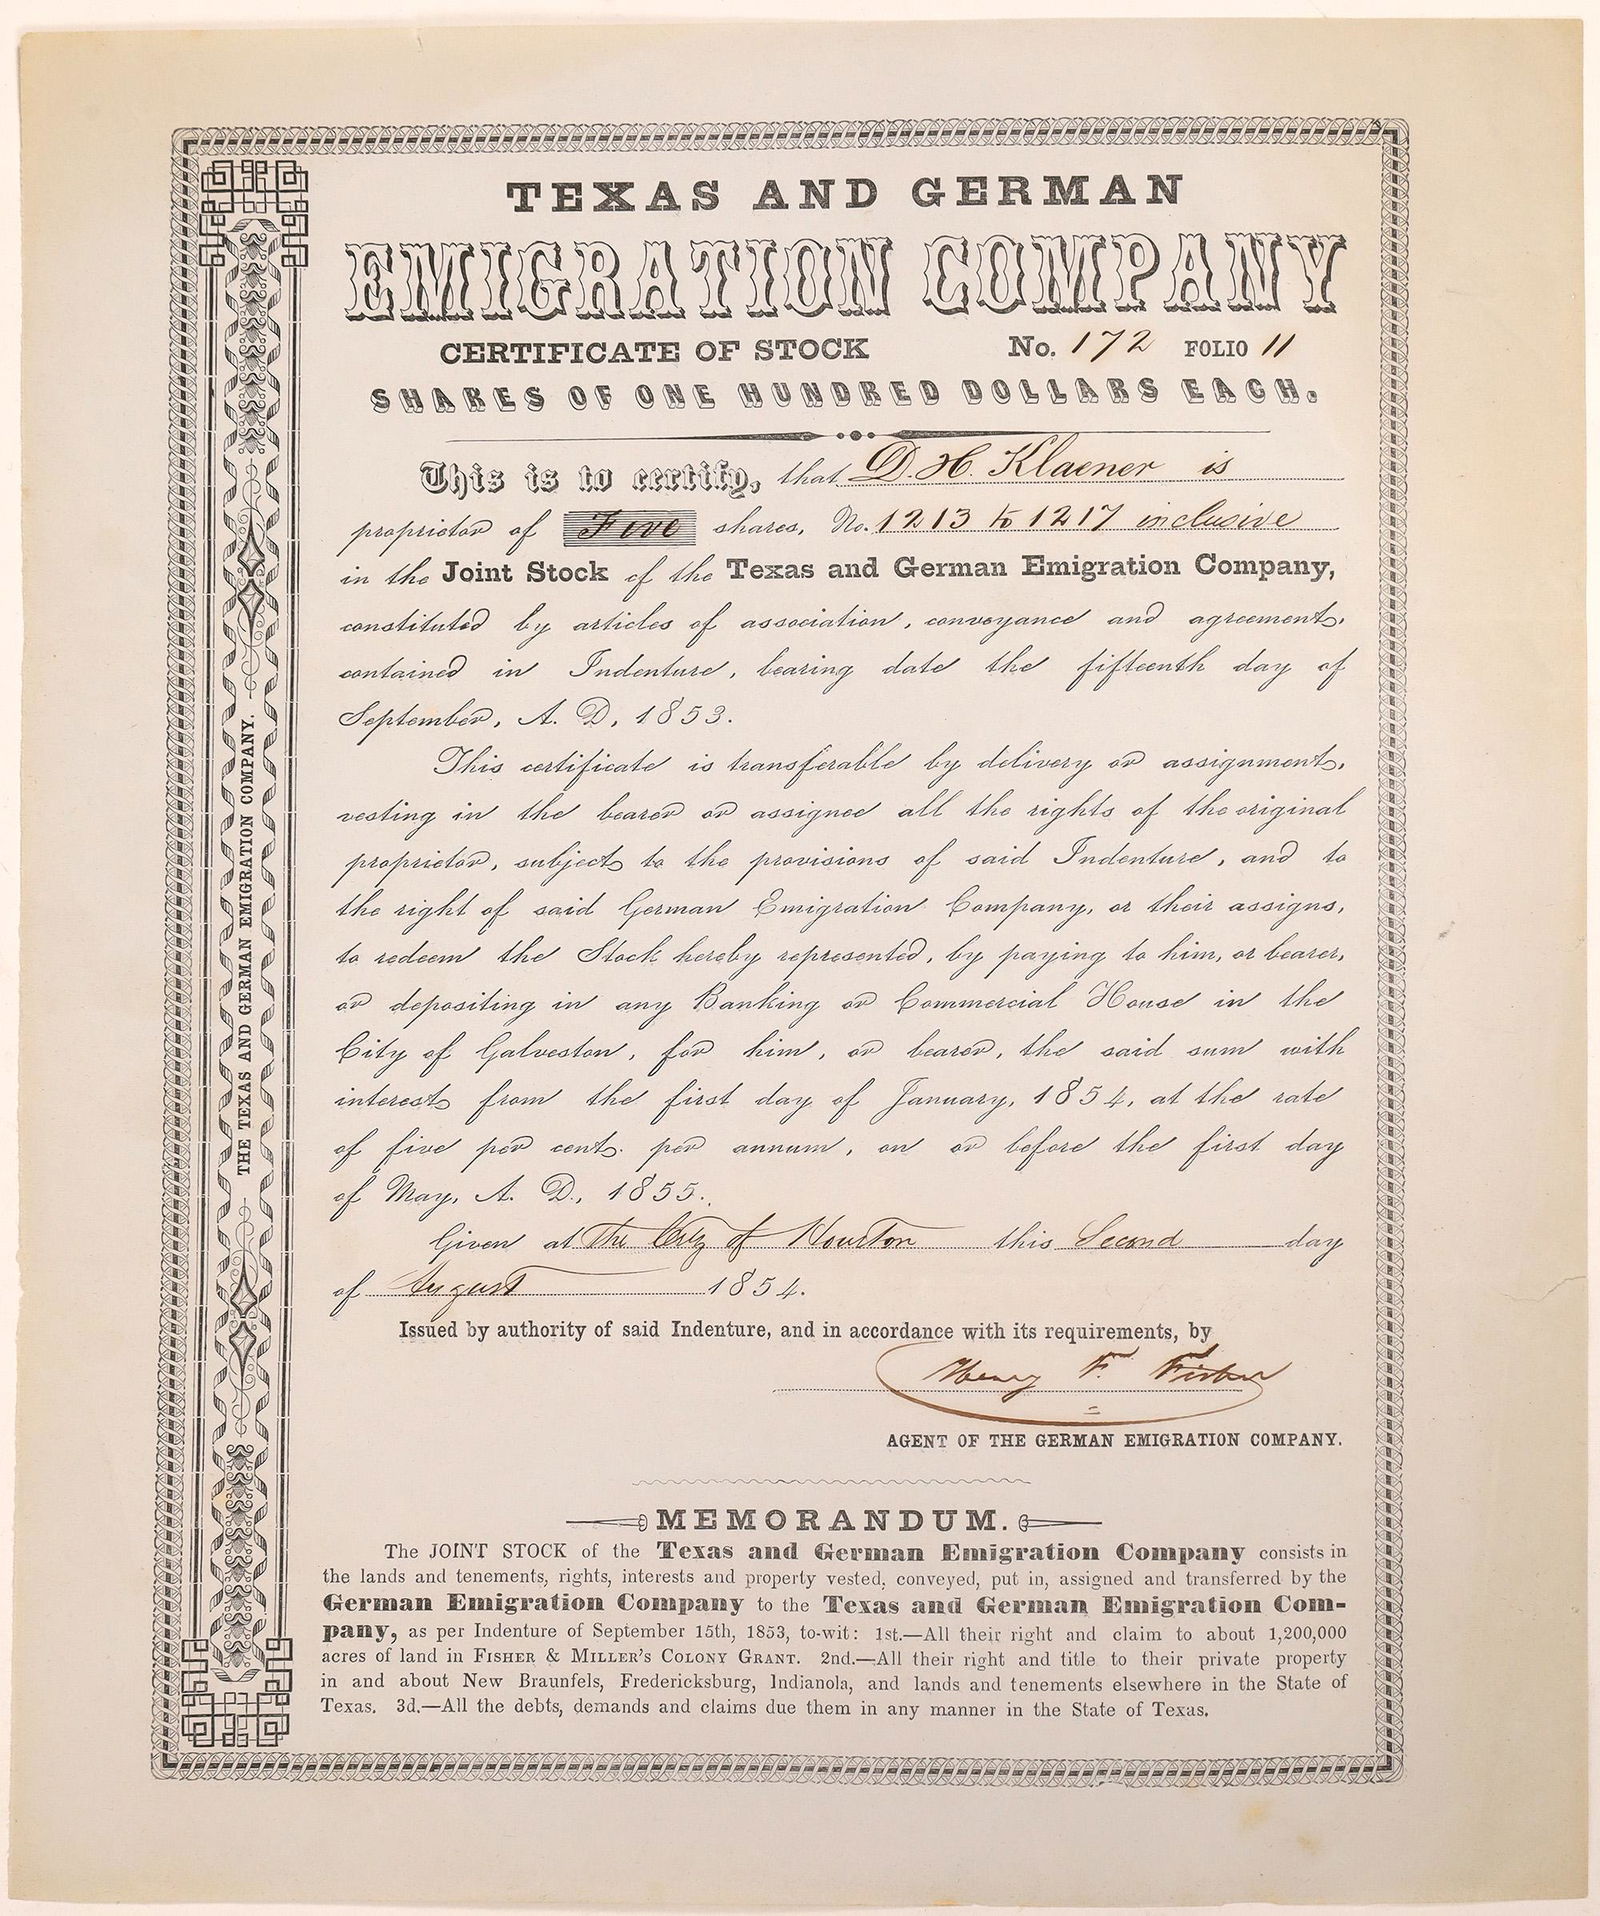 TEXAS AND GERMAN
EMIGRATION COMPANY
CERTIFICATE OF STOCK No. 172 FOLIO 11
SHARES OF ONE HUNDRED DOLLARS EACH.
This is to certify, that D. H. Klaener is
proprietor of Five shares, No. 1213 to 1217 inclusive
in the Joint Stock of the Texas and German Emigration Company,
constituted by articles of association, conveyance and agreement,
contained in Indenture, bearing date the fifteenth day of
September, A. D. 1853.
This certificate is transferable by delivery or assignment,
vesting in the bearer or assignee all the rights of the original
proprietor, subject to the provisions of said Indenture, and to
the right of said German Emigration Company, or their assigns,
to redeem the Stock hereby represented, by paying to him, or bearer,
or depositing in any Banking or Commercial House in the
City of Galveston, for him, or bearer, the said sum with
interest from the first day of January, 1854, at the rate
of five per cent. per annum, on or before the first day
of May, A. D., 1855.
Given at The City of Houston this Second day
of August 1854.
Issued by authority of said Indenture, and in accordance with its requirements, by
Henry F. Fisher
AGENT OF THE GERMAN EMIGRATION COMPANY.
MEMORANDUM.
The JOINT STOCK of the Texas and German Emigration Company consists in
the lands and tenements, rights, interests and property vested, conveyed, put in, assigned and transferred by the
German Emigration Company to the Texas and German Emigration Com-
pany, as per Indenture of September 15th, 1853, to-wit: 1st.—All their right and claim to about 1,200,000
acres of land in FISHER & MILLER'S COLONY GRANT. 2nd.—All their right and title to their private property
in and about New Braunfels, Fredericksburg, Indianola, and lands and tenements elsewhere in the State of
Texas. 3d.—All the debts, demands and claims due them in any manner in the State of Texas.
THE TEXAS AND GERMAN EMIGRATION COMPANY.